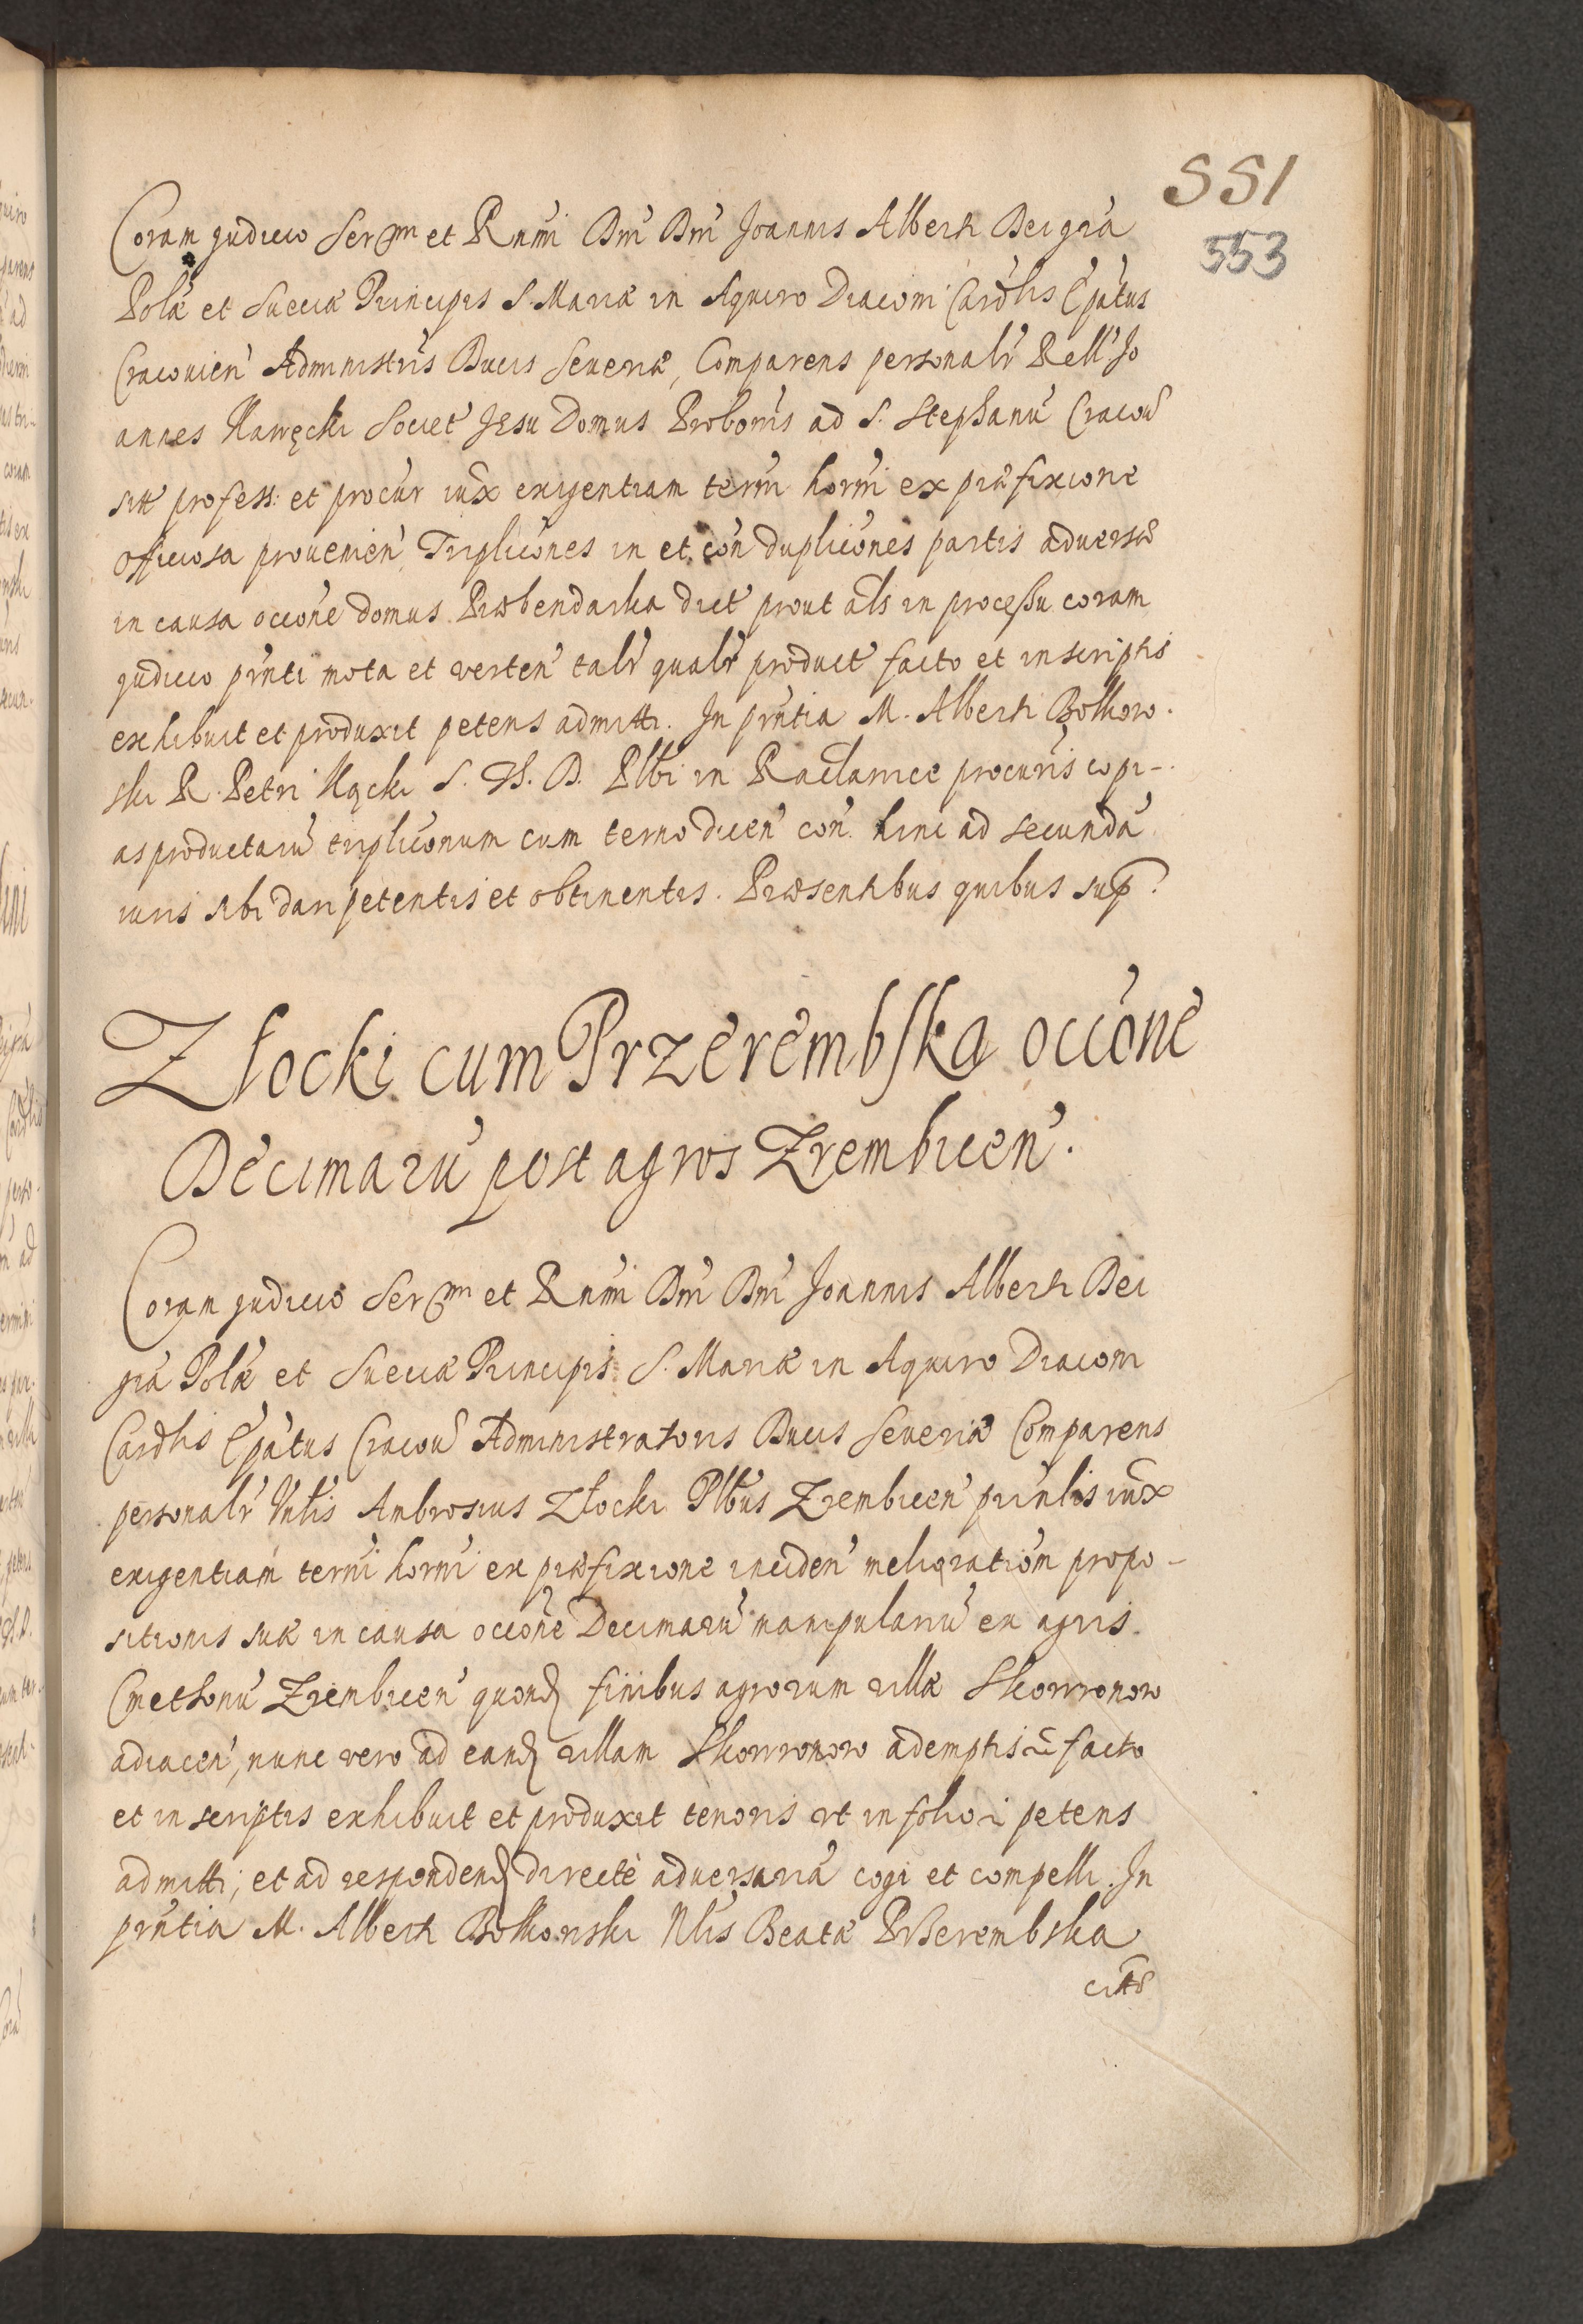 551
553
Coram judicio Serssmi et Rnmi Dni Dni Joannis Alberti Dei gra
Polæ et Sueciæ Principis S. Mariæ in Aquiro Diaconi Cardlis Epatus
Cracouien Administris Ducis Seueriæ, Comparens personalr Rell Jo
annes Kawęcki Societ Jesu Domus Probonis ad S. Stephanu Cracou
sitt profess: et procur iux exigentiam termi horni ex præfixione
officiosa prouenien Triplicones in et con duplicones partis aduersæ
in causa occone domus Præbendarka dict prout als in processu coram
judicio pnti mota et verten talr qualr product facto et in scriptis
exhibuit et produxit petens admitti. In pntia M. Alberti Bolkow-
ski R. Petri Kącki S. Th. D. Plbi in Raclawice procuris copi-
as productaru tripliconum cum terno dicen con hinc ad secunda
iuris sibi dari petentis et obtinentis. Præsentibus quibus sup
Złocki cum Przerembska occone
Decimaru post agros Zrembicen.
Coram judicio Serssmi et Rnmi Dni Dni Joannis Alberti Dei
gra Polæ et Sueciæ Principis S. Mariæ in Aquiro Diaconi
Cardlis Epatus Cracou Administratoris Ducis Seueriæ Comparens
personalr Vnlis Ambrosius Złocki Plbus Zrembicen prinlis iux
exigentiam termi horni ex præfixione inciden meliorationm propo-
sitionis suæ in causa occone Decimaru manipulariu ex agris
Cmethonu Zrembicen quond finibus agrorum villæ Skowronow
adiacen, nunc vero ad eand villam Skowronow ademptis facto
et in scriptis exhibuit et produxit tenoris vt in folio petens
admitti, et ad respondend directè aduersaria cogi et compelli. In
pntia M. Alberti Bolkowski Nlis Beatæ Przerembska
citæ